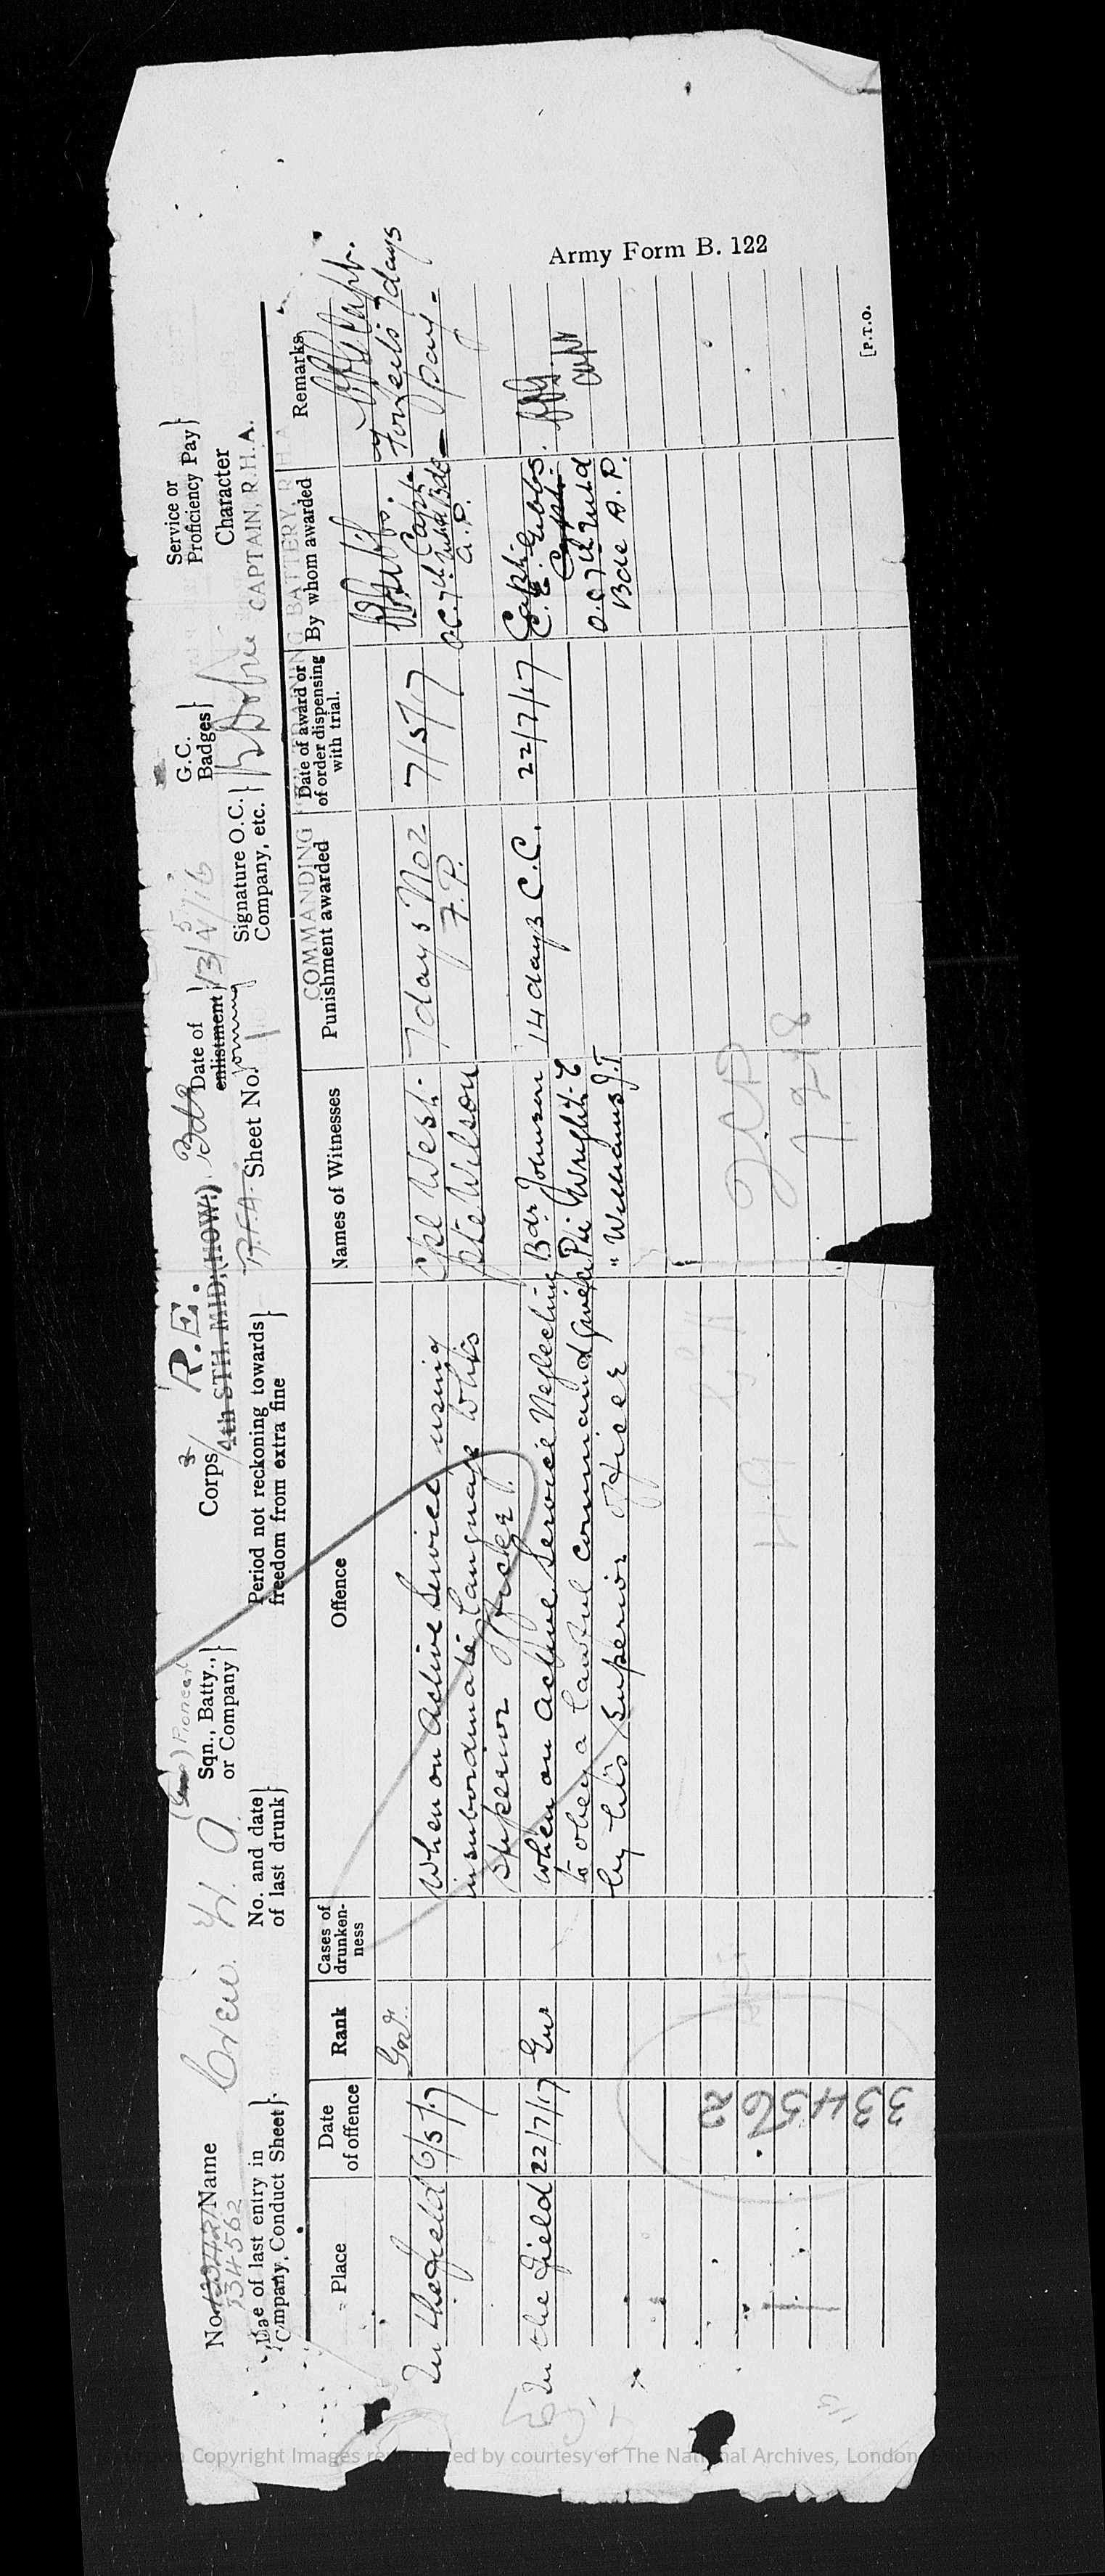 Army Form B. 122
(Gnr) Pioneer
No. 133412 Name Crew. H. A.
334562
Sqn., Batty.,
or Company
Corps R.E.
4th STH. MID. (HOW.) Bde
R.F.A.
Date of
enlistment 13/5/16
joining
G.C.
Badges
Service or
Proficiency Pay
Date of last entry in
Company Conduct Sheet
No. and date
of last drunk
Period not reckoning towards
freedom from extra fine
Sheet No. 1
Signature O.C.
Company, etc.
CAPTAIN, R.H.A.
Character
COMMANDING TRAINING BATTERY, R.H.A.
Place
Date
of offence
Rank
Cases of
drunken-
ness
Offence
Names of Witnesses
Punishment awarded
Date of award or
of order dispensing
with trial.
By whom awarded
Remarks
In the field 6/5/17 Gnr. When on active service using
insubordinate language to his
superior officer.
Cpl West.
Pte Wilson
7 days No 2
F. P.
7/5/17
Gibbs.
Capt.
O.C. 7th Bde
A.P.
Capt.
Forfeits 7 days
pay.
In the Field 22/7/17 Gnr When on active service Neglecting
to obey a lawful command given
by his superior officer
Bdr. Johnson
Pte Wright. T
" Williams J.T
14 days C.C.
22/7/17
Captain
C. E. Gibbs.
Capt.
O.C 7th
Bde A.P.
Capt
334562
[P.T.O.
Crown Copyright Images reproduced by courtesy of The National Archives, London, England